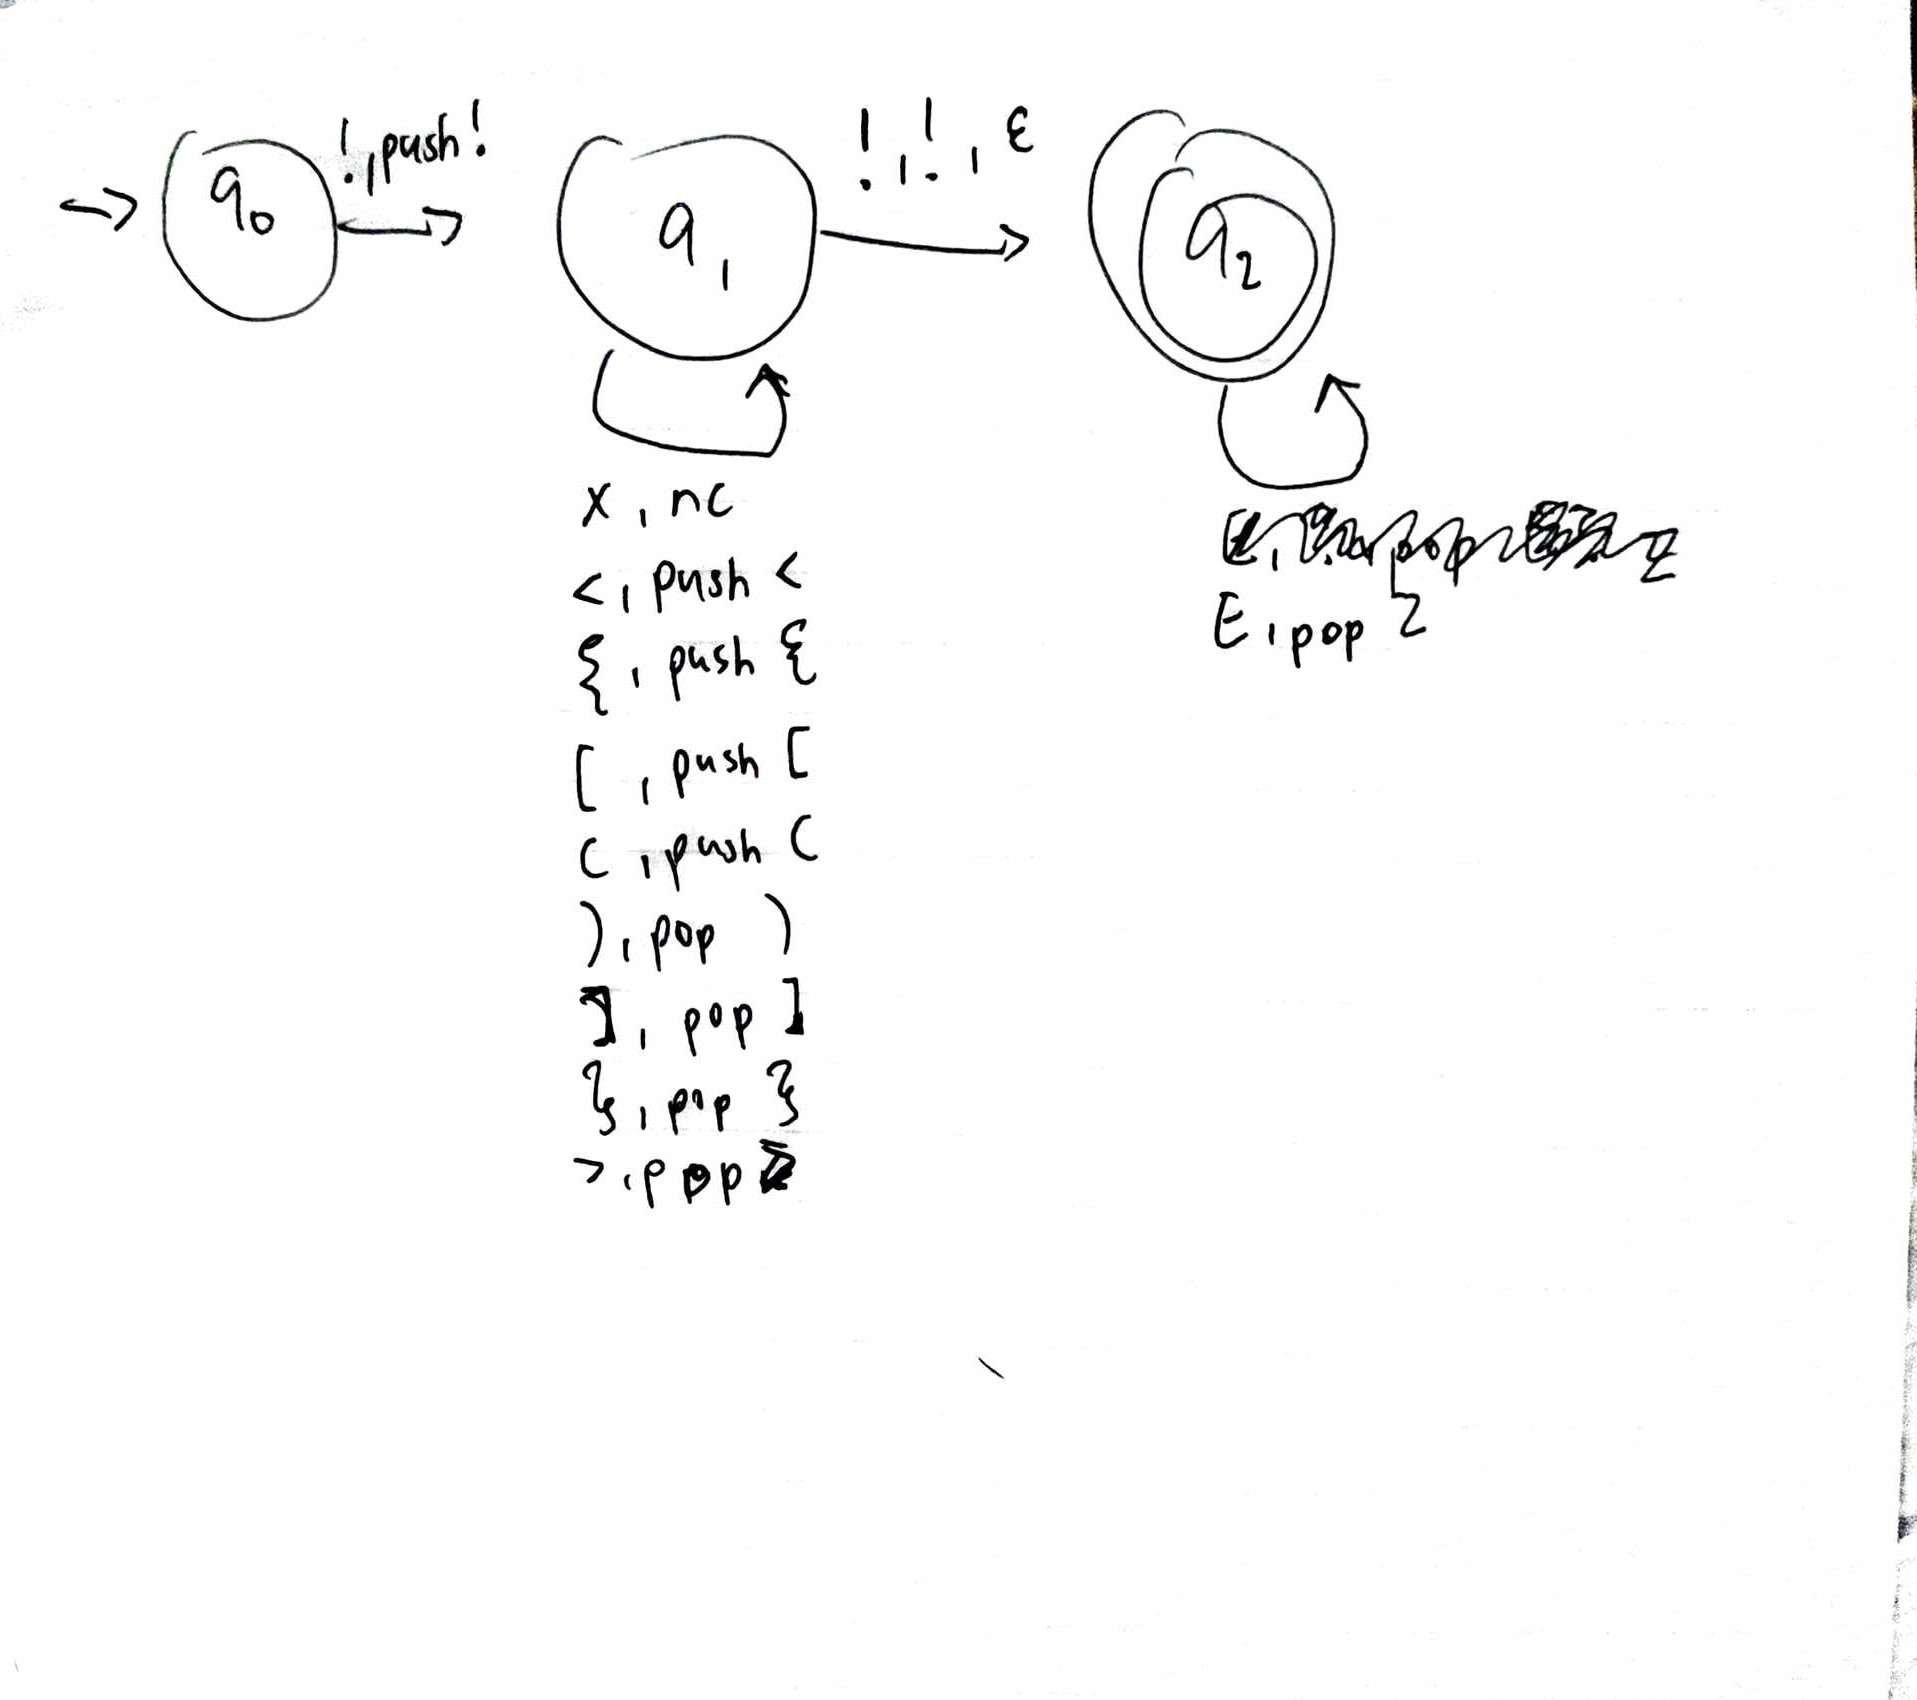 q0
!,push!
q1
!,!,ε
q2
x,nc
<,push <
{,push {
[,push [
(,push (
),pop )
],pop ]
},pop }
>,pop >
ε,pop z